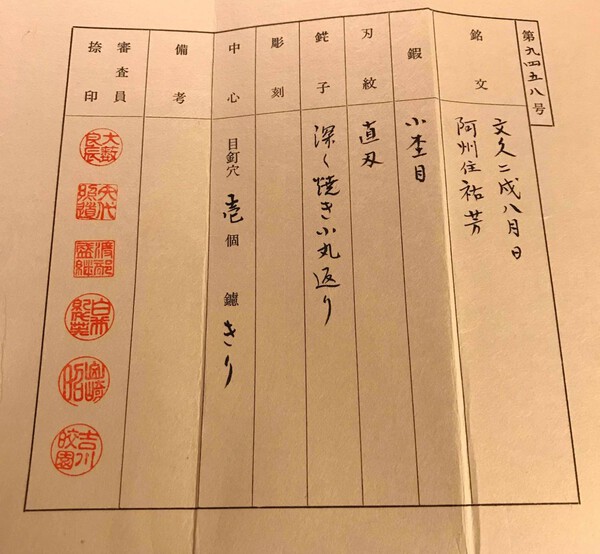 第九四五八号
銘文
文久二戌八月日
阿州住祐芳
鍜
小杢目
刃紋
直刃
鋩子
深く焼き小丸返り
彫刻
中心
目釘穴 壱 個 鑢 きり
備考
審査員
捺印
大薮
良辰
矢代
照道
渡部
盛継
白希
吉川
皎園